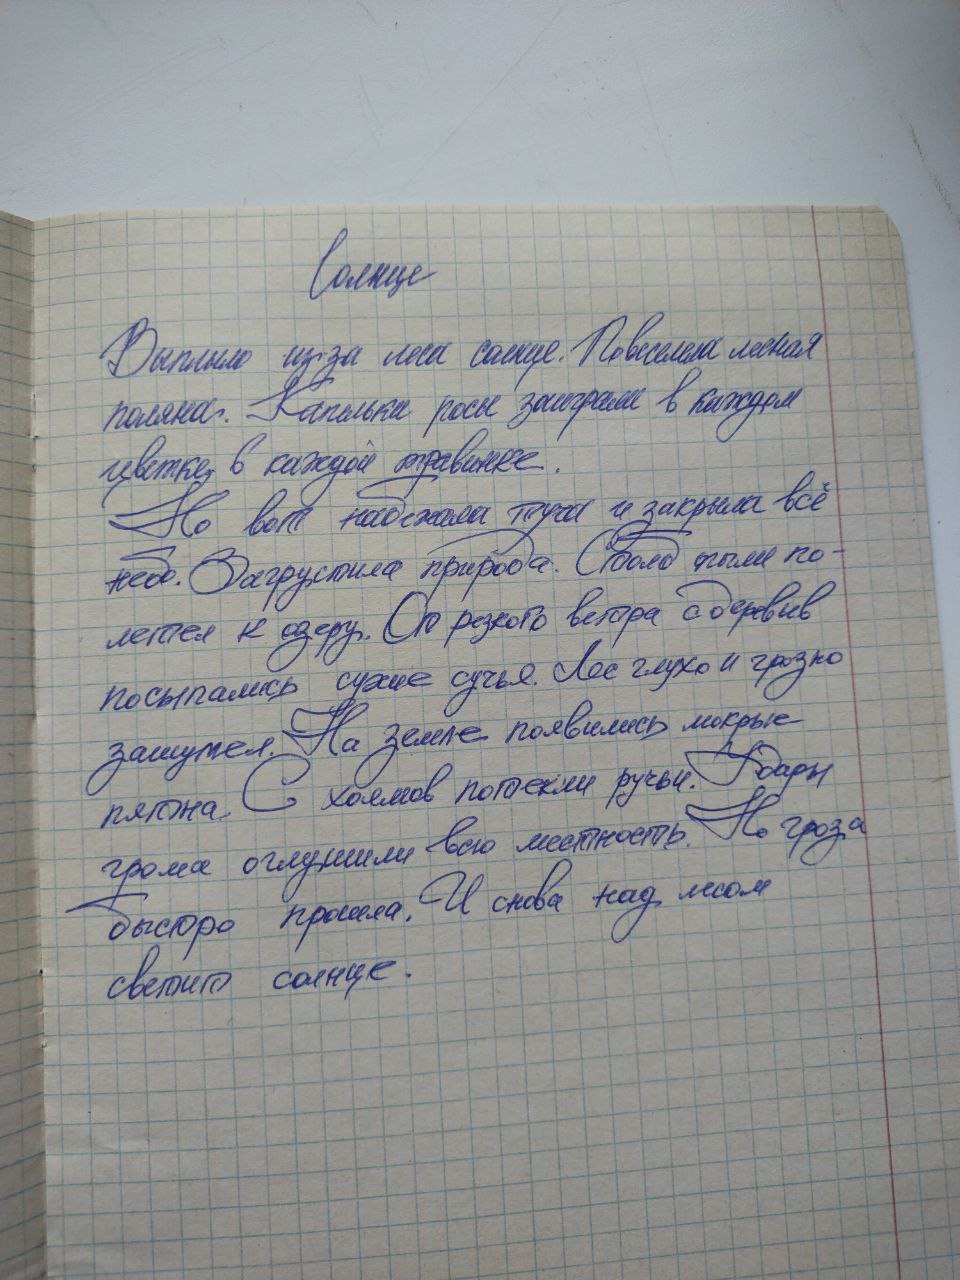 Солнце
Выплыло из-за леса солнце. Повеселела лесная
поляна. Капельки росы заиграли в каждом
цветке, в каждой травинке.
Но вот набежала туча и закрыла всё
небо. Загрустила природа. Столб пыли по-
летел к озеру. От резкого ветра с деревьев
посыпались сухие сучья. Лес глухо и грозно
зашумел. На земле появились мокрые
пятна. С холмов потекли ручьи. Удары
грома оглушили всю местность. Но гроза
быстро прошла. И снова над лесом
светит солнце.